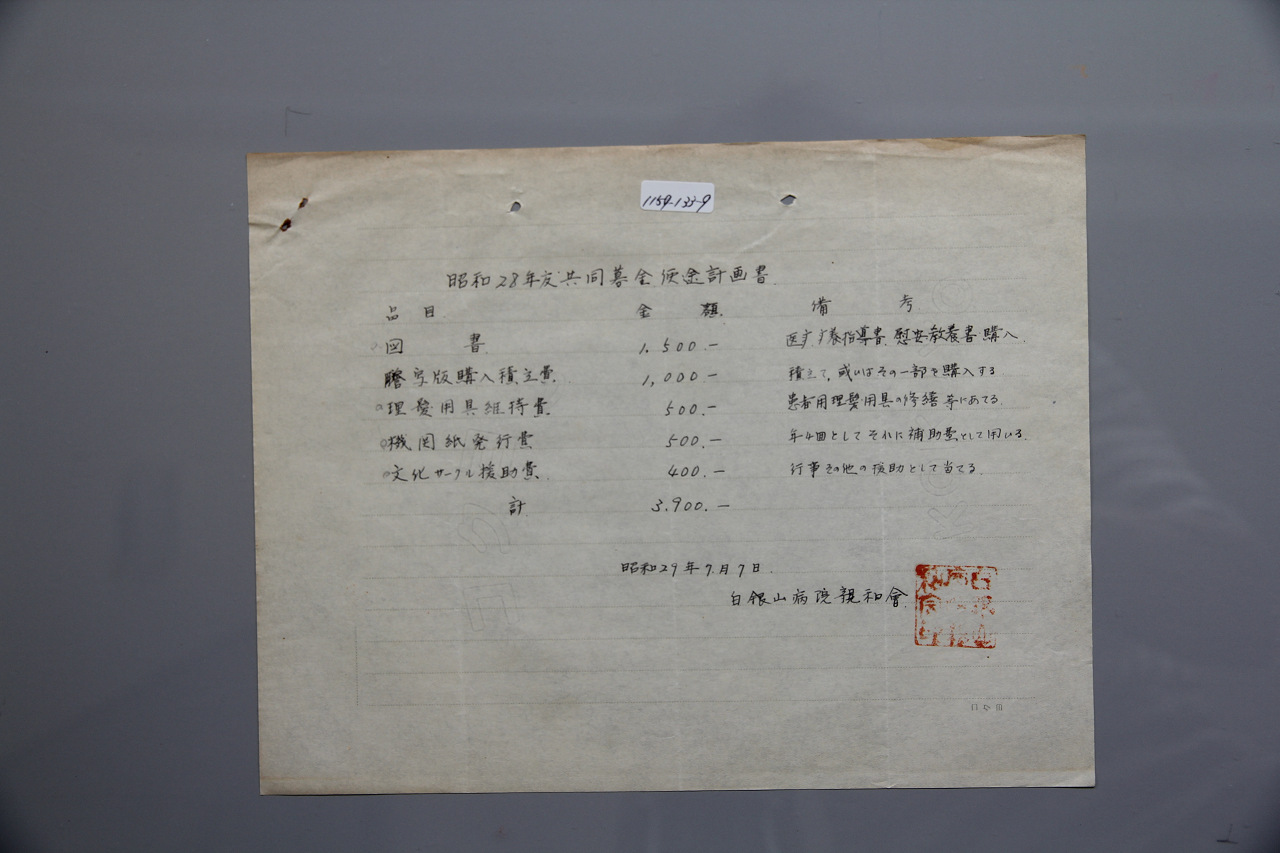 1159-133-9
昭和28年度共同募金使途計画書
品目 金額 備考
図書 1.500.- 医療、療養指導書、慰安教養書購入
謄写版購入積立費 1,000.- 積立て、或いはその一部を購入する
理髪用具維持費 500.- 患者用理髪用具の修繕等にあてる
機関紙発行費 500.- 年4回としてそれに補助費として用いる
文化サークル援助費 400.- 行事その他の援助として当てる
計 3.900.-
昭和29年7月7日
白銀山病院親和會